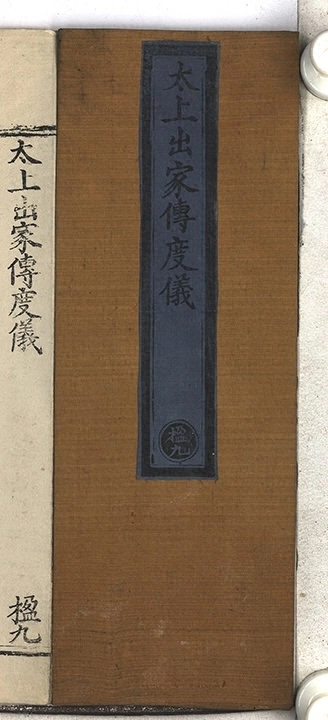 太上出家傳度儀
楹九
太上出家傳度儀
楹九